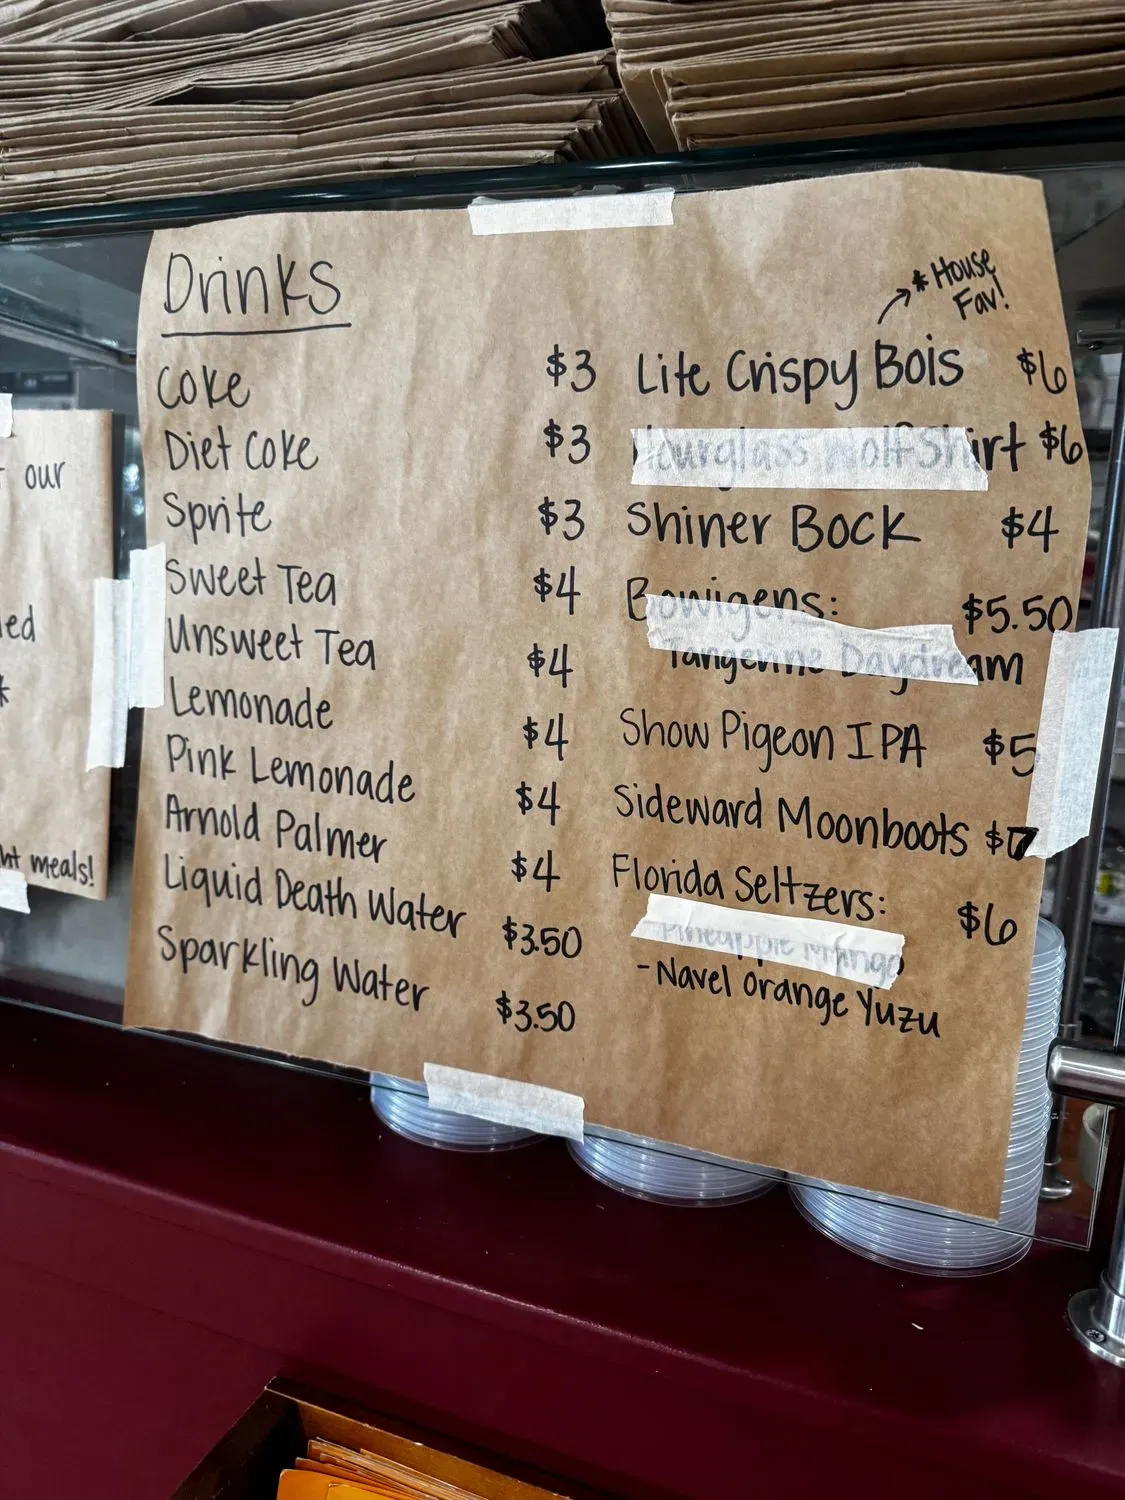 Drinks
Coke $3
Diet Coke $3
Sprite $3
Sweet Tea $4
Unsweet Tea $4
Lemonade $4
Pink Lemonade $4
Arnold Palmer $4
Liquid Death Water $3.50
Sparkling Water $3.50
* House
Fav!
Lite Crispy Bois $6
Hourglass Wolf Shirt $6
Shiner Bock $4
Bowigens: $5.50
Tangerine Daydream
Show Pigeon IPA $5
Sideward Moonboots $7
Florida Seltzers: $6
- Pineapple Mango
- Navel Orange Yuzu
our
ht meals!